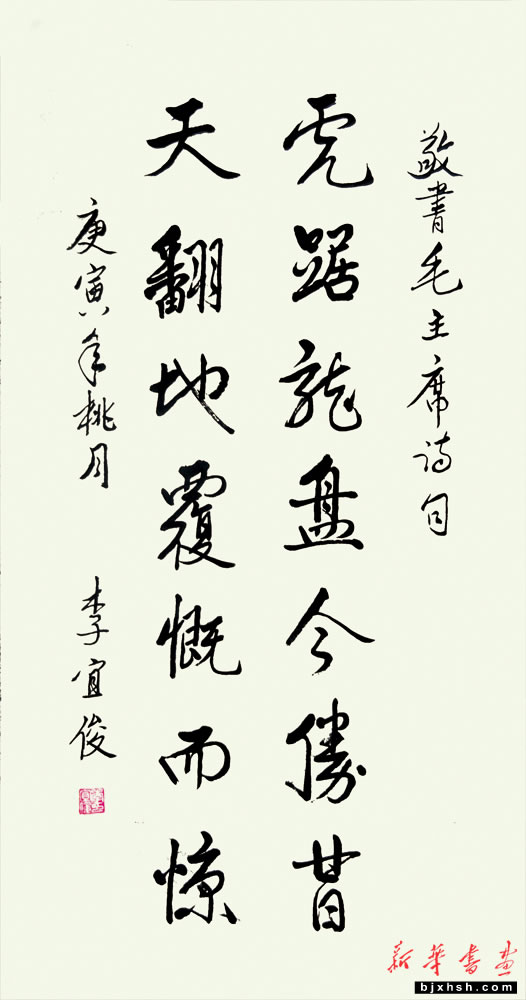 敬書毛主席詩句
虎踞龍盘今勝昔
天翻地覆慨而慷
庚寅年桃月 李宜俊
新華書畫
bjxhsh.com